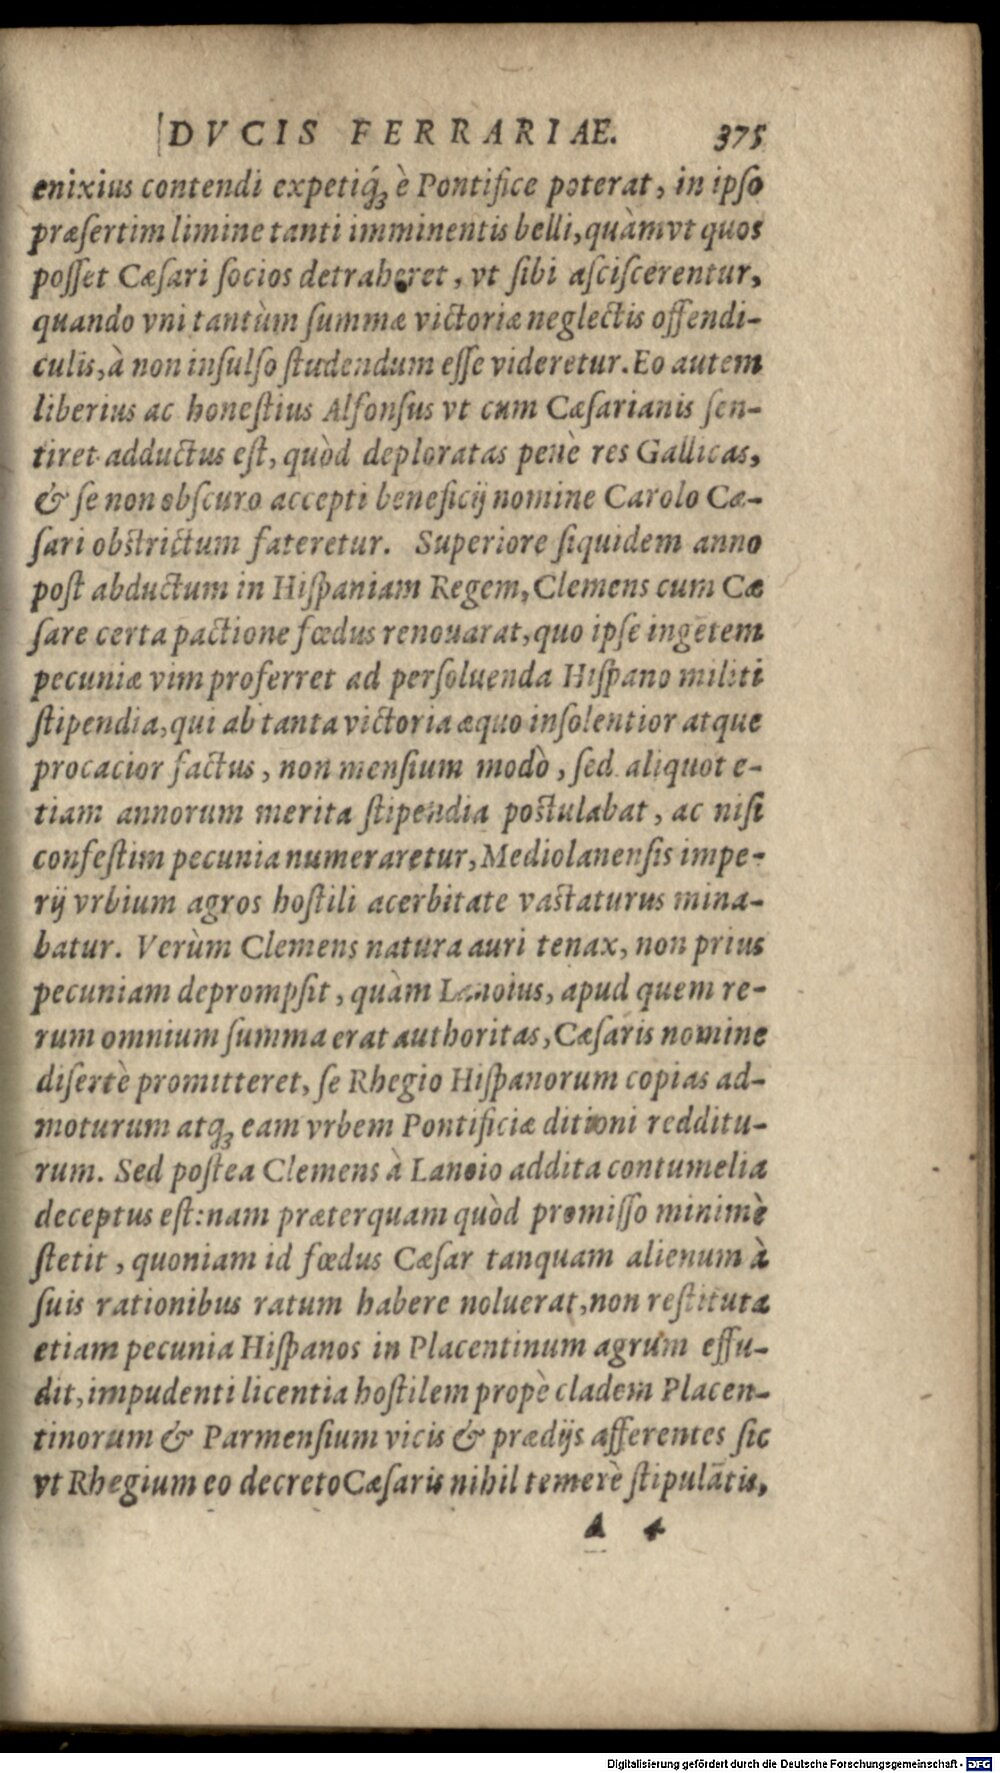 DVCIS FERRARIAE. 375
enixius contendi expetiq́ꝫ è Pontifice poterat, in ipſo
præſertim limine tanti imminentis belli, quàm vt quos
poſſet Cæſari ſocios detraheret, vt ſibi aſciſcerentur,
quando vni tantùm ſummæ victoriæ neglectis offendi-
culis, à non inſulſo ſtudendum eſſe videretur. Eo autem
liberius ac honeſtius Alfonſus vt cum Cæſarianis ſen-
tiret adductus eſt, quòd deploratas penè res Gallicas,
& ſe non obſcuro accepti beneficij nomine Carolo Cæ-
ſari obſtrictum fateretur. Superiore ſiquidem anno
poſt abductum in Hiſpaniam Regem, Clemens cum Cæ
ſare certa pactione fœdus renouarat, quo ipſe ingētem
pecuniæ vim proferret ad perſoluenda Hiſpano militi
ſtipendia, qui ab tanta victoria æquo inſolentior atque
procacior factus, non menſium modò, ſed aliquot e-
tiam annorum merita ſtipendia poſtulabat, ac niſi
confeſtim pecunia numeraretur, Mediolanenſis impe-
rij vrbium agros hoſtili acerbitate vaſtaturus mina-
batur. Verùm Clemens natura auri tenax, non prius
pecuniam deprompſit, quàm Lanoius, apud quem re-
rum omnium ſumma erat authoritas, Cæſaris nomine
diſertè promitteret, ſe Rhegio Hiſpanorum copias ad-
moturum atqꝫ eam vrbem Pontificiæ ditioni redditu-
rum. Sed poſtea Clemens à Lanoio addita contumelia
deceptus eſt: nam præterquam quòd promiſſo minimè
ſtetit, quoniam id fœdus Cæſar tanquam alienum à
ſuis rationibus ratum habere noluerat, non reſtituta
etiam pecunia Hiſpanos in Placentinum agrum effu-
dit, impudenti licentia hoſtilem propè cladem Placen-
tinorum & Parmenſium vicis & prædijs afferentes ſic
vt Rhegium eo decreto Cæſaris nihil temerè ſtipulātis,
A 4
Digitalisierung gefördert durch die Deutsche Forschungsgemeinschaft - DFG